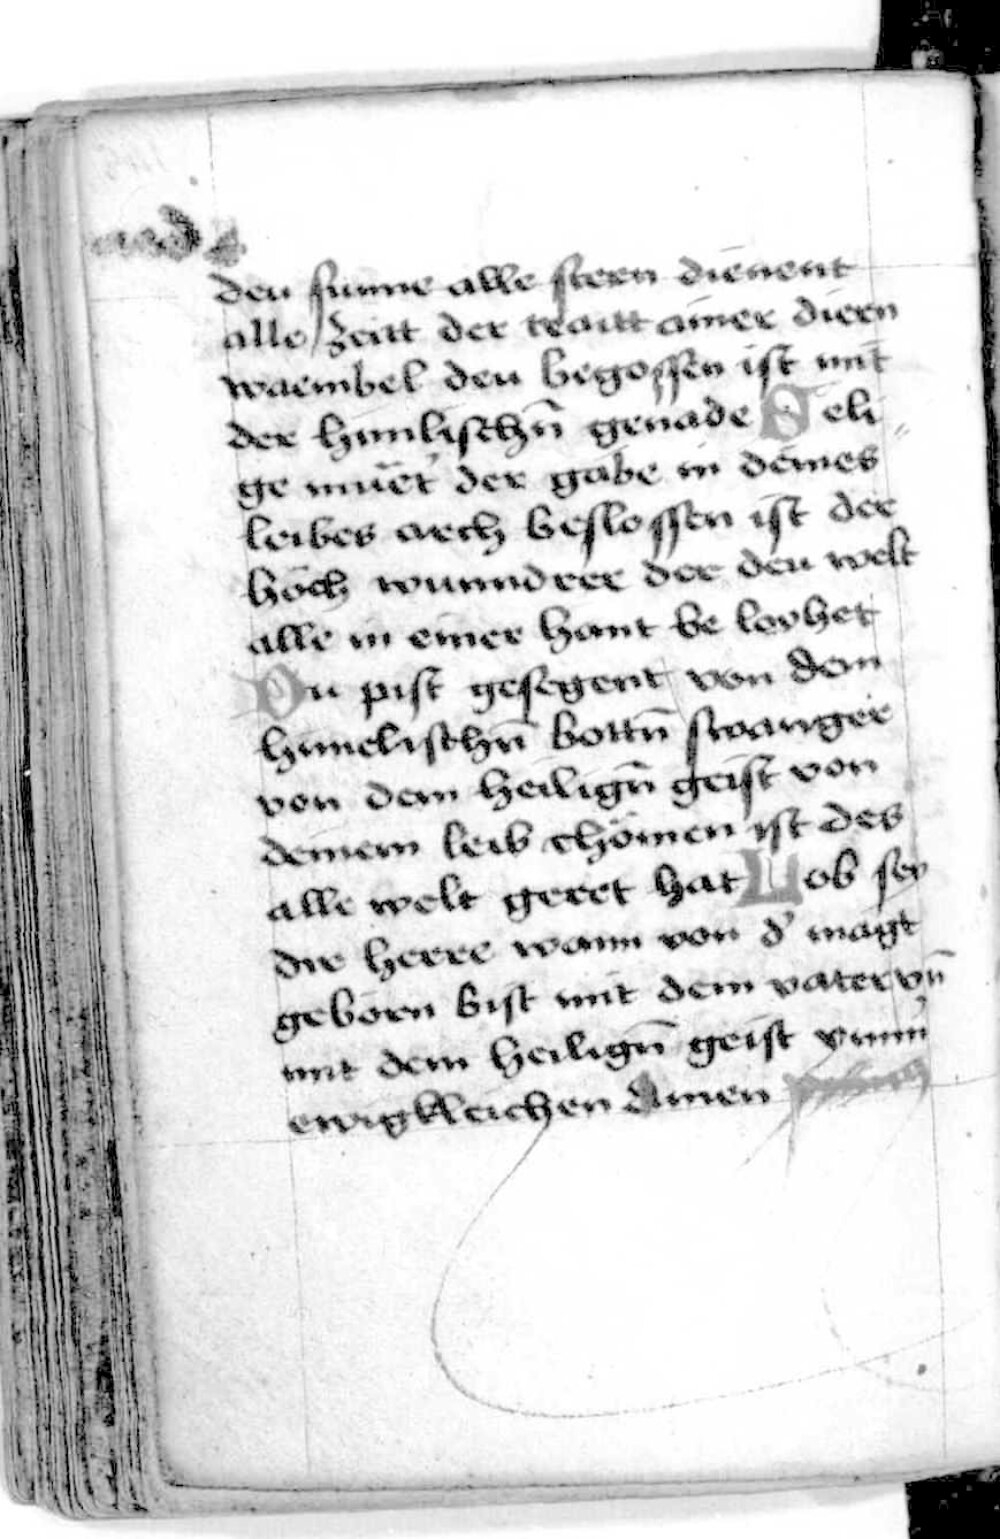 deu sunne alle stern dienent
alle zeitt der traitt ainer diern
waembel deu begossen ist mit
der himlischn̄ genade Seli
ge muet' der gabe in deines
leibes arch beslossen ist der
hoch wunndrer der deu welt
alle in einer hant be levhet
Du pist gesegent von dem
himelischn̄ bottn̄ swanger
von dem heilign̄ geist von
deinem leib chömen ist des
alle welt geret hat Lob sey
dir herre wann von d' magt
geborn bist mit dem vater vn̄
mit dem heilign̄ geist ymm'
ewigkleichen Amen